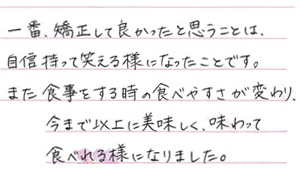 一番、矯正して良かったと思うことは、
自信持って笑える様になったことです。
また食事をする時の食べやすさが変わり、
今まで以上に美味しく、味わって
食べれる様になりました。